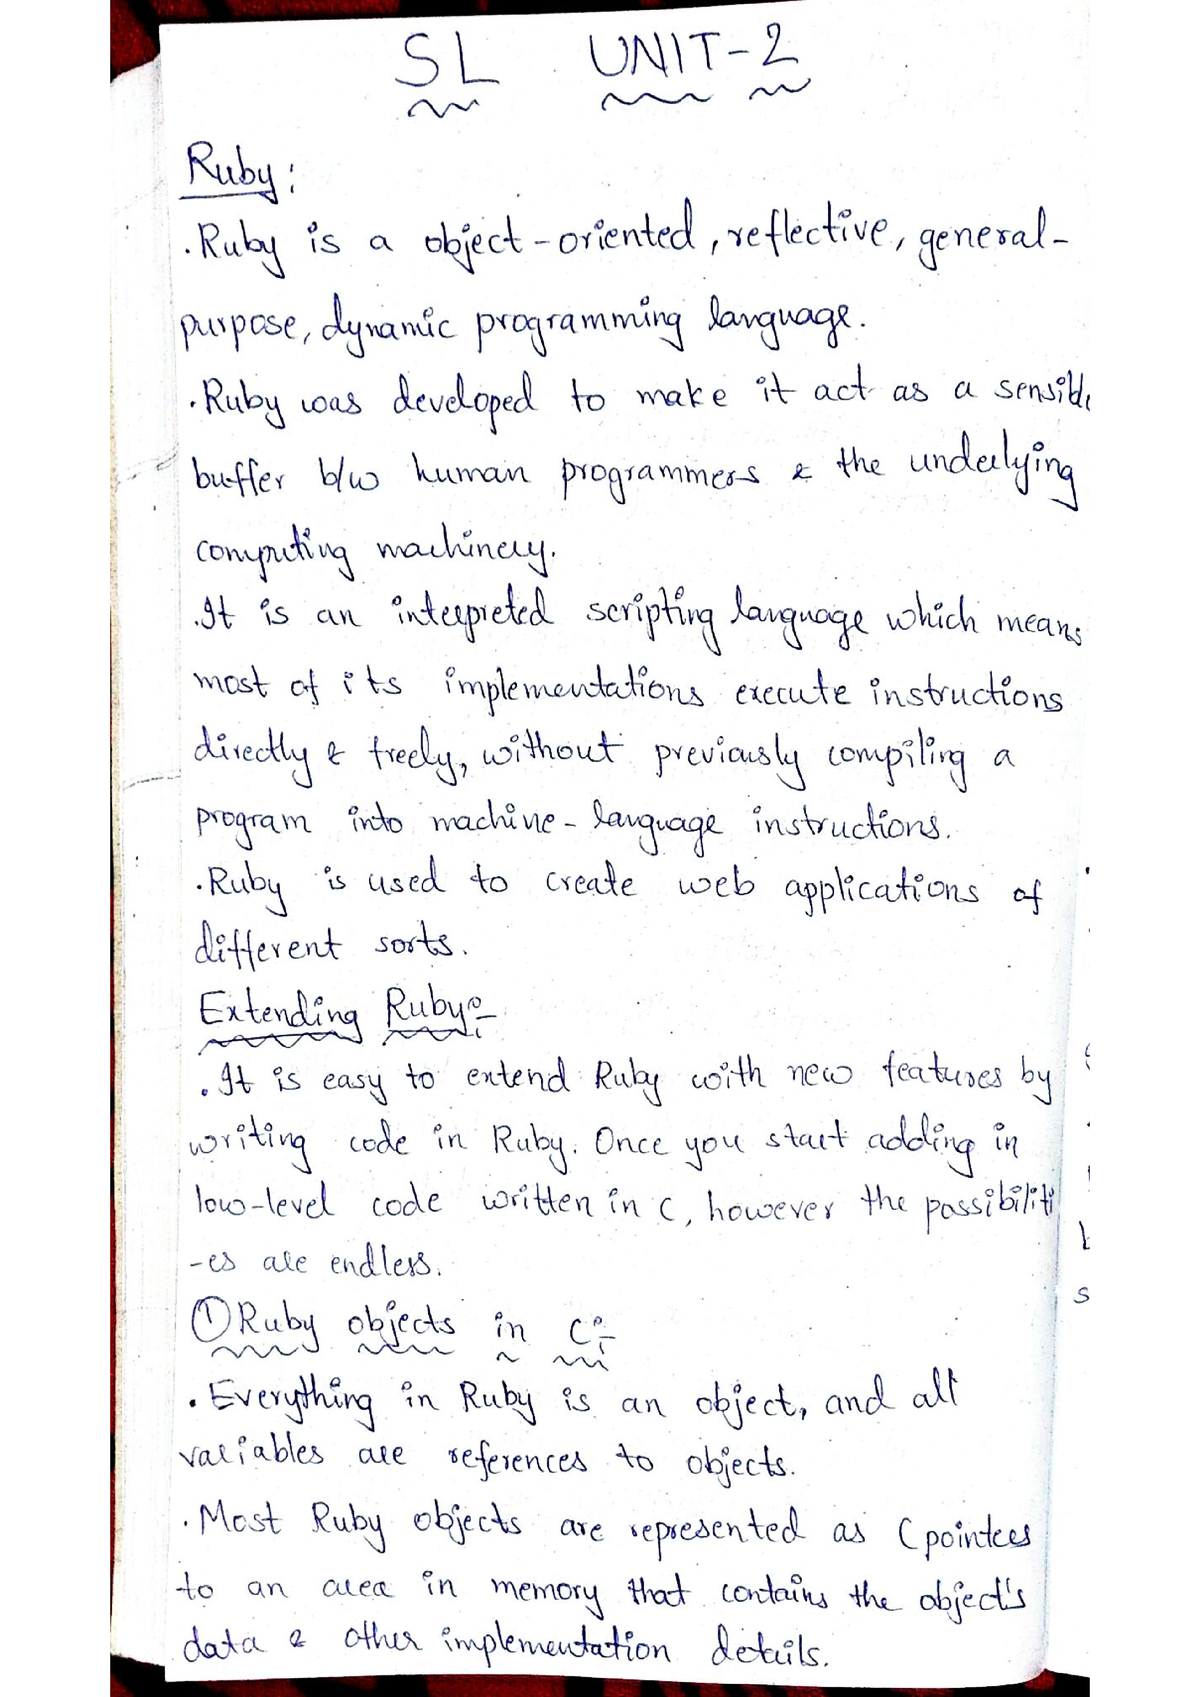 SL UNIT-2
Ruby:
.Ruby is a object-oriented, reflective, general-
purpose, dynamic programming language.
.Ruby was developed to make it act as a sensibl
buffer b/w human programmers & the underlying
computing machinery.
.It is an interpreted scripting language which means
most of its implementations execute instructions
directly & freely, without previously compiling a
program into machine-language instructions.
.Ruby is used to create web applications of
different sorts.
Extending Ruby:-
.It is easy to extend Ruby with new features by
writing code in Ruby. Once you start adding in
low-level code written in C, however the possibiliti
-es are endless.
① Ruby objects in C:-
.Everything in Ruby is an object, and all
variables are references to objects.
.Most Ruby objects are represented as C pointers
to an area in memory that contains the object's
data & other implementation details.